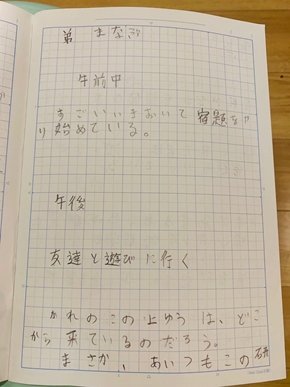 弟 まな所
午前中
すごいいきおいで宿題をや
り始めている。
午後
友達と遊びに行く
かれのこの上ゆうは、どこ
から来ているのだろう。
まさか、あいつもこの研